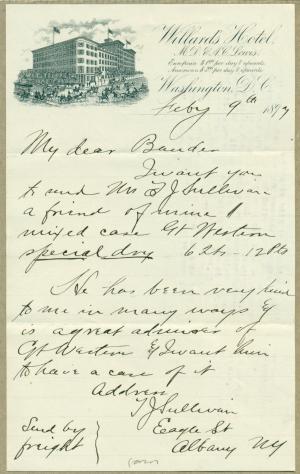 Willard's Hotel,
M.D. & A.C. Lewis.
European $1.00 per day & upwards.
American $3.00 per day & upwards.
Washington, D.C.
Feby 9th 1897
My dear Bauder
I want you
to send Mr T J Sullivan
a friend of mine 1
mixed case Gt Western
special dry 6 qts - 12 pts
He has been very kind
to me in many ways &
is a great admirer of
Gt Western & I want him
to have a case of it
Address
T J Sullivan
Eagle St
Albany NY
Send by
freight